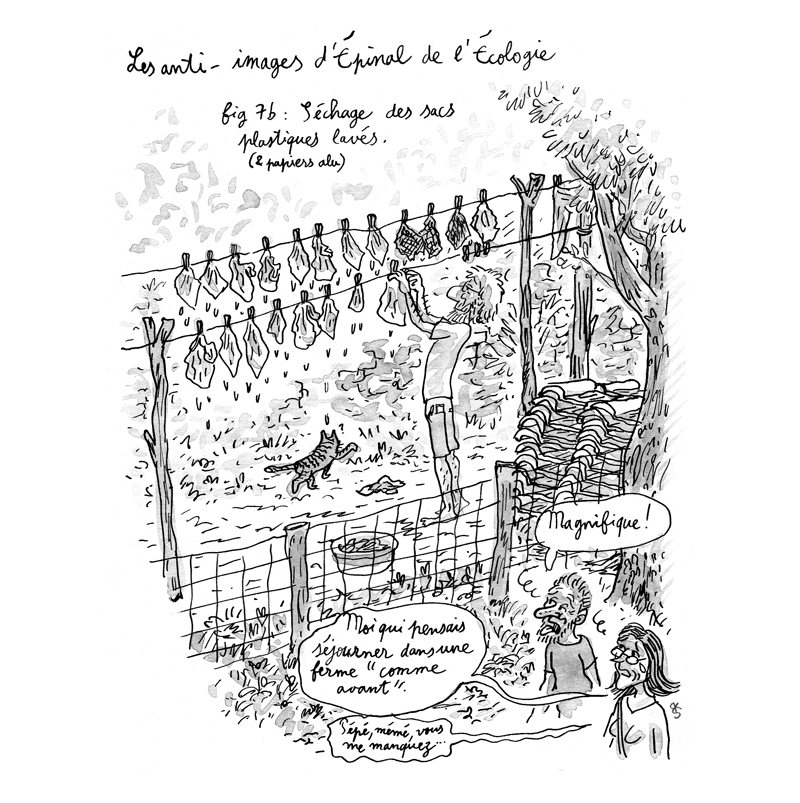 Les anti-images d'Épinal de l'Écologie
fig 7b : Séchage des sacs
plastiques lavés.
(& papiers alu)
Magnifique !
Moi qui pensais
séjourner dans une
ferme "comme
avant".
Pépé, mémé, vous
me manquez...